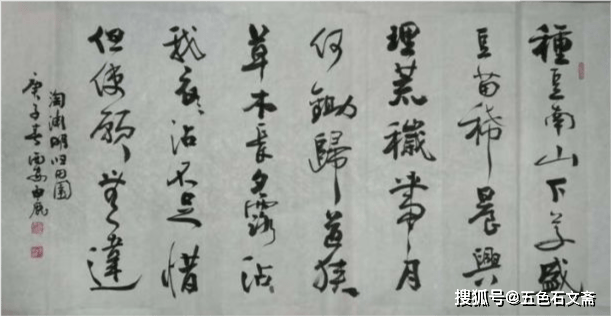 種豆南山下草盛
豆苗稀晨興
理荒穢帶月
何鋤歸道狹
草木長夕露沾
我衣沾不足惜
但使願無違
淘渊明归田园
庚子春西安
搜狐号@五色石文斋